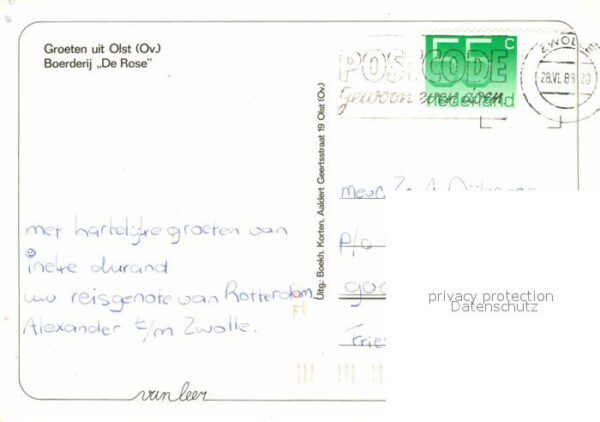 Groeten uit Olst (Ov.)
Boerderij „De Rose”
55 c
nederland
POSTCODE
gewoon even doen
ZWOLLE
28.VI.89 20
Uitg: Boekh. Korten, Aaldert Geertsstraat 19 Olst (Ov.)
met hartelijke groeten van
ineke durand
uw reisgenote van Rotterdam
Alexander t/m Zwolle.
mevr.
p/o
Frie
privacy protection
Datenschutz
van leer